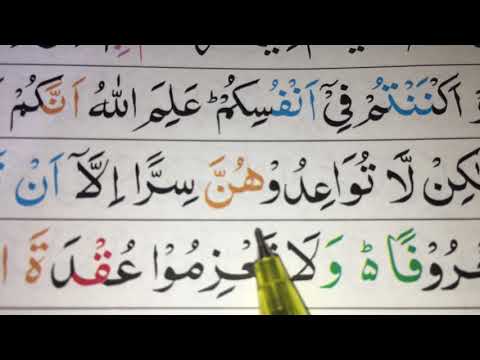 اَكْنَنْتُمْ فِيْۤ اَنْفُسِكُمْ ؕ عَلِمَ اللّٰهُ اَنَّكُمْ
لٰكِنْ لَّا تُوَاعِدُوْهُنَّ سِرًّا اِلَّاۤ اَنْ
عْرُوْفًا ؕ۬ وَلَا تَعْزِمُوْا عُقْدَةَ